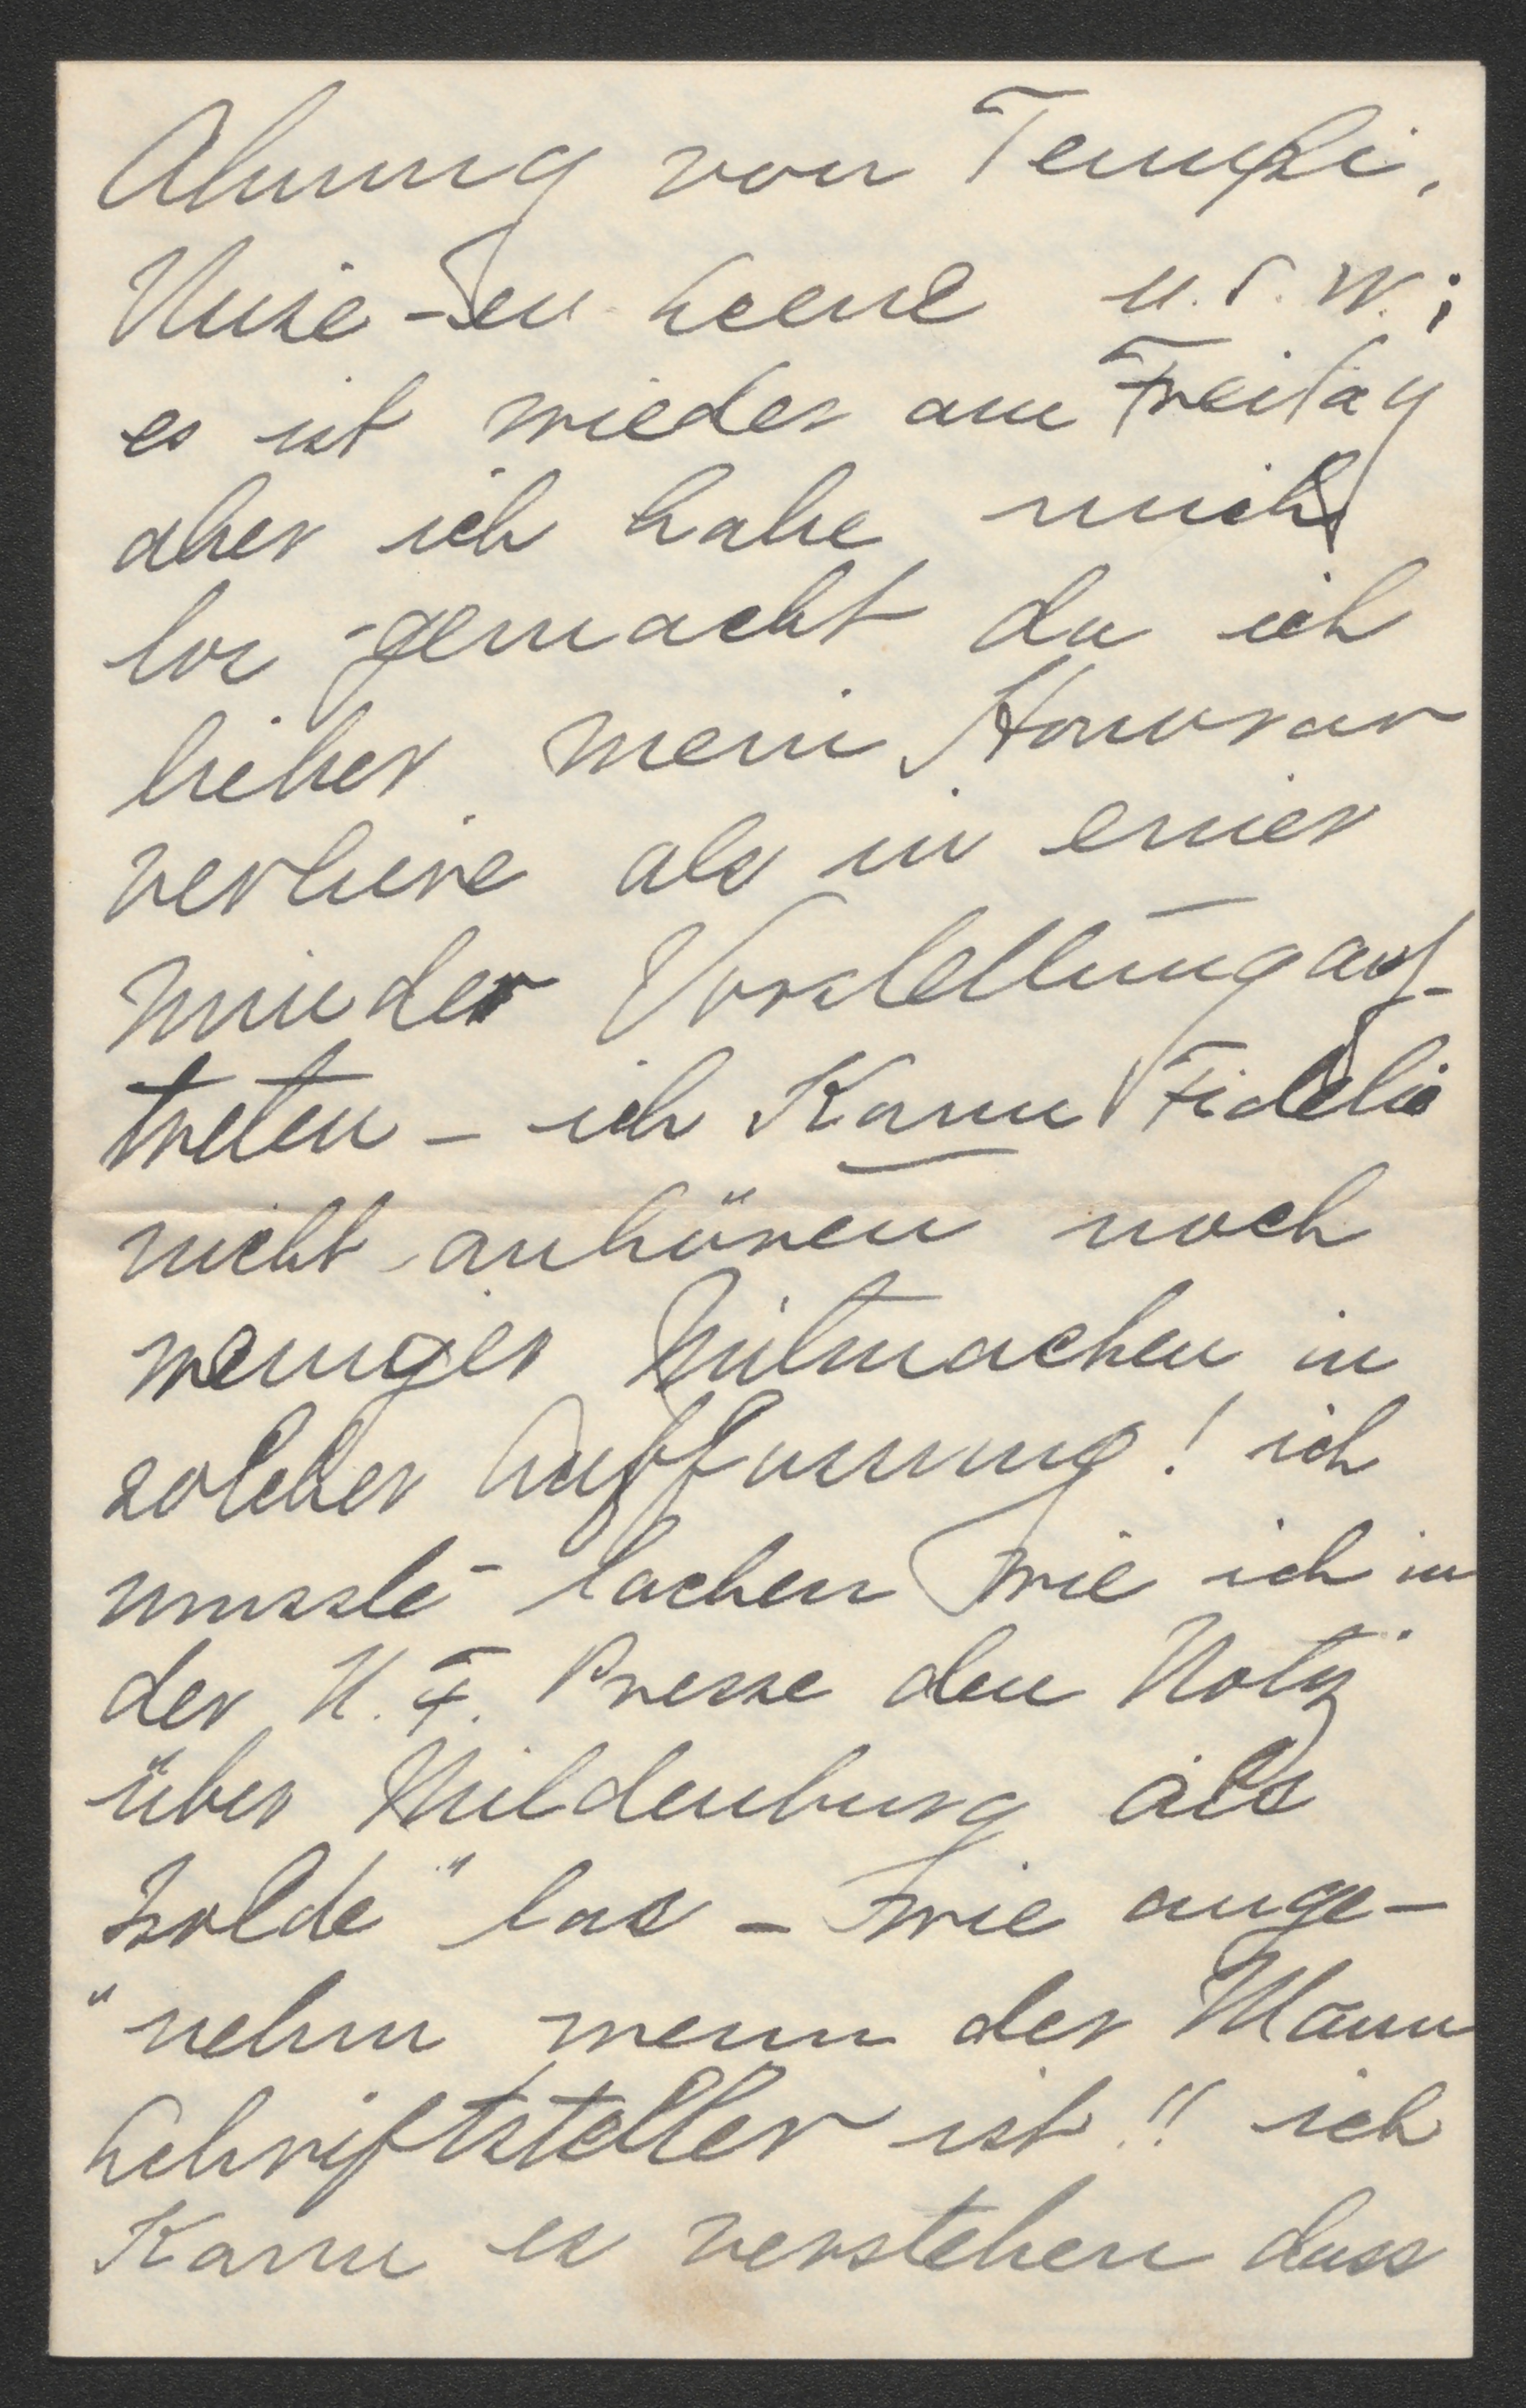 Ahnung von Tempi,
Mise-en scene u.s.w.;
es ist wieder am Freitag
aber ich habe mich
los-gemacht da ich
lieber mein Honorar
verliere als in einer
minder Vorstellung auf-
treten – ich Kann Fidelio
nicht anhören noch
weniger mitmachen in
solcher Auffassung! ich
musste lachen wie ich in
der N. F. Presse den Notiz
über Mildenburg als
Isolde" las – wie ange-
"nehm wenn der Mann
Schriftsteller ist!! ich
Kann es verstehen dass